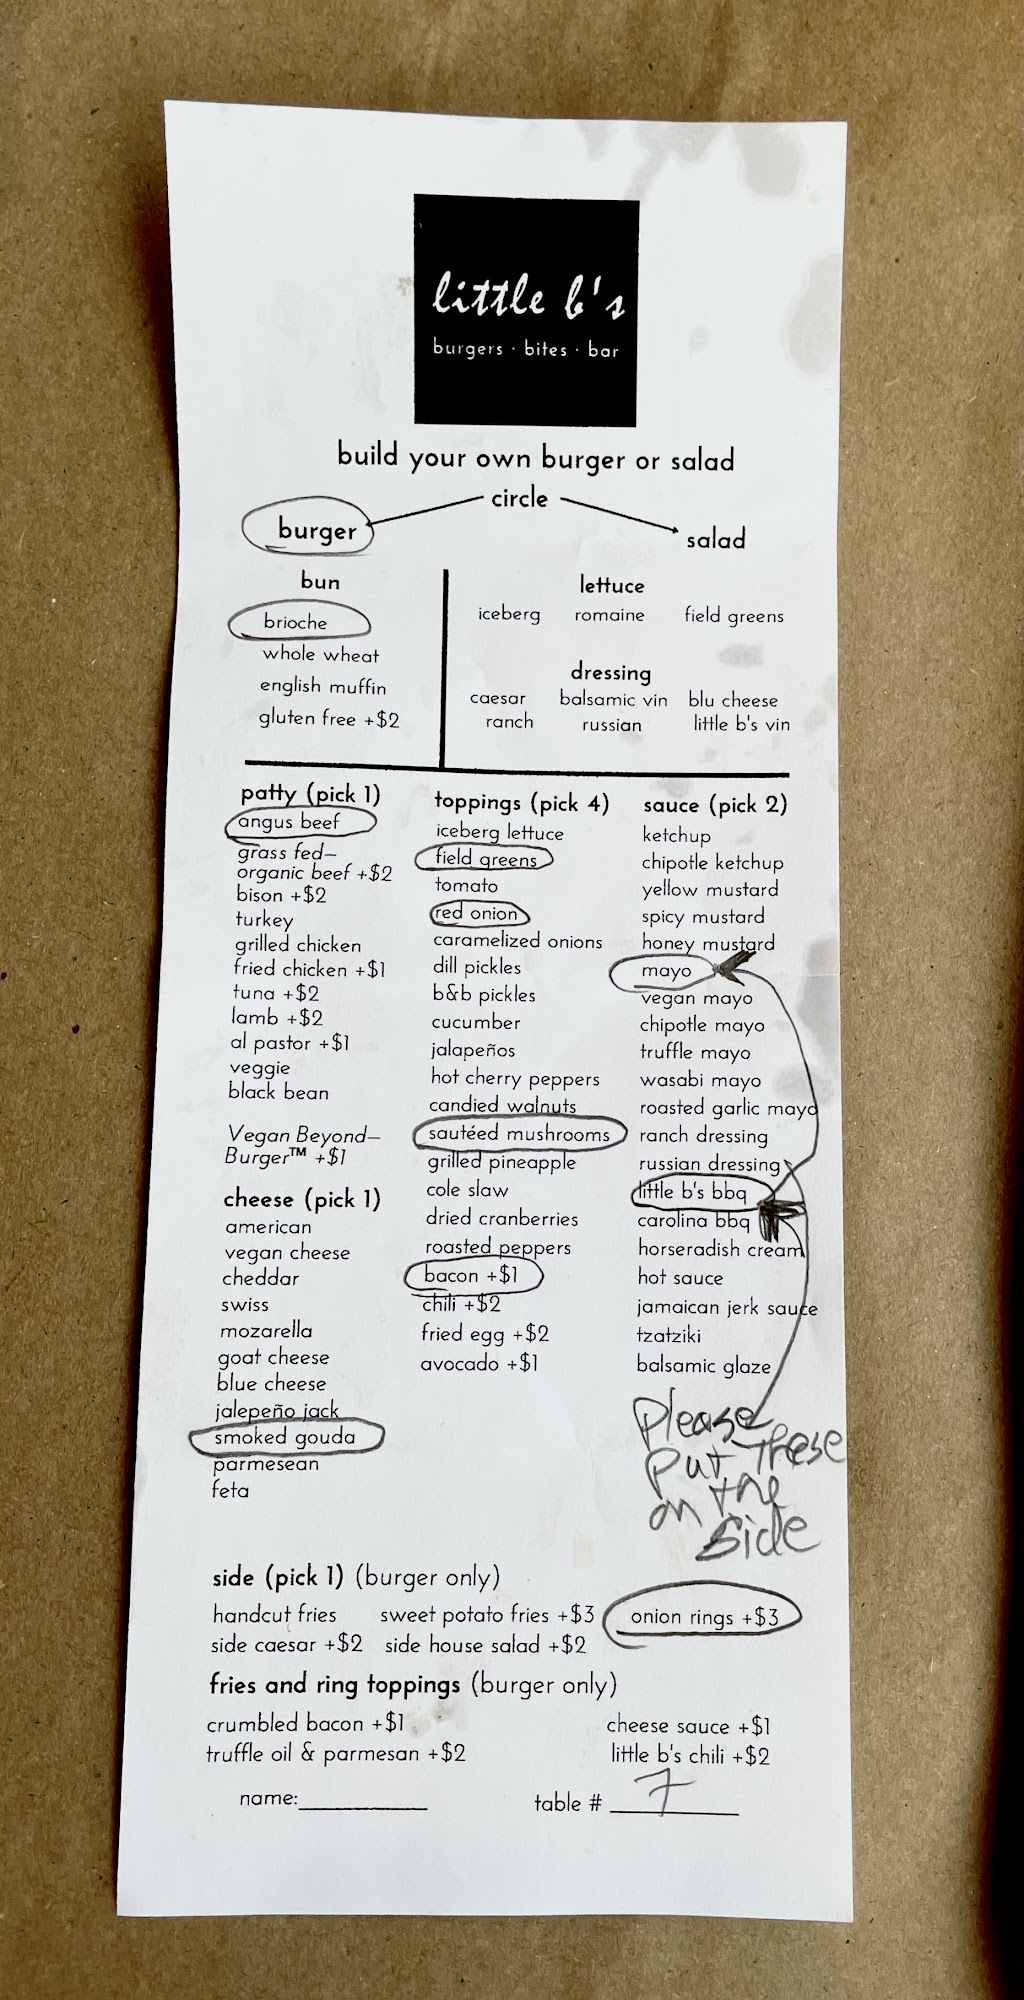 little b's
burgers · bites · bar
build your own burger or salad
circle
burger
salad
bun
brioche
whole wheat
english muffin
gluten free +$2
lettuce
iceberg romaine field greens
dressing
caesar balsamic vin blu cheese
ranch russian little b's vin
patty (pick 1)
angus beef
grass fed–
organic beef +$2
bison +$2
turkey
grilled chicken
fried chicken +$1
tuna +$2
lamb +$2
al pastor +$1
veggie
black bean
Vegan Beyond–
Burger™ +$1
cheese (pick 1)
american
vegan cheese
cheddar
swiss
mozarella
goat cheese
blue cheese
jalepeño jack
smoked gouda
parmesean
feta
toppings (pick 4)
iceberg lettuce
field greens
tomato
red onion
caramelized onions
dill pickles
b&b pickles
cucumber
jalapeños
hot cherry peppers
candied walnuts
sautéed mushrooms
grilled pineapple
cole slaw
dried cranberries
roasted peppers
bacon +$1
chili +$2
fried egg +$2
avocado +$1
sauce (pick 2)
ketchup
chipotle ketchup
yellow mustard
spicy mustard
honey mustard
mayo
vegan mayo
chipotle mayo
truffle mayo
wasabi mayo
roasted garlic mayo
ranch dressing
russian dressing
little b's bbq
carolina bbq
horseradish cream
hot sauce
jamaican jerk sauce
tzatziki
balsamic glaze
Please
put These
on the
side
side (pick 1) (burger only)
handcut fries sweet potato fries +$3 onion rings +$3
side caesar +$2 side house salad +$2
fries and ring toppings (burger only)
crumbled bacon +$1 cheese sauce +$1
truffle oil & parmesan +$2 little b's chili +$2
name: table # 7